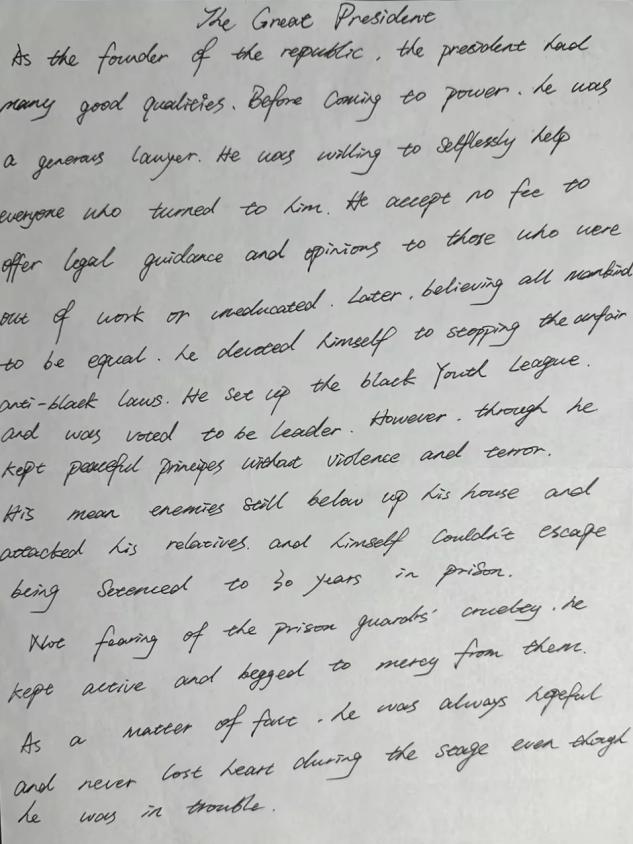 The Great President
As the founder of the republic, the president had
many good qualities. Before coming to power, he was
a generous lawyer. He was willing to selflessly help
everyone who turned to him. He accept no fee to
offer legal guidance and opinions to those who were
out of work or uneducated. Later, believing all mankind
to be equal. he devoted himself to stopping the unfair
anti-black laws. He set up the black Youth League.
and was voted to be leader. However, through he
kept peaceful principes without violence and terror.
His mean enemies still below up his house and
attacked his relatives. and himself couldn't escape
being Setenced to 30 years in prison.
Not fearing of the prison guards' cruelty, he
kept active and begged to mercy from them.
As a matter of fact, he was always hopeful
and never lost heart during the stage even though
he was in trouble.